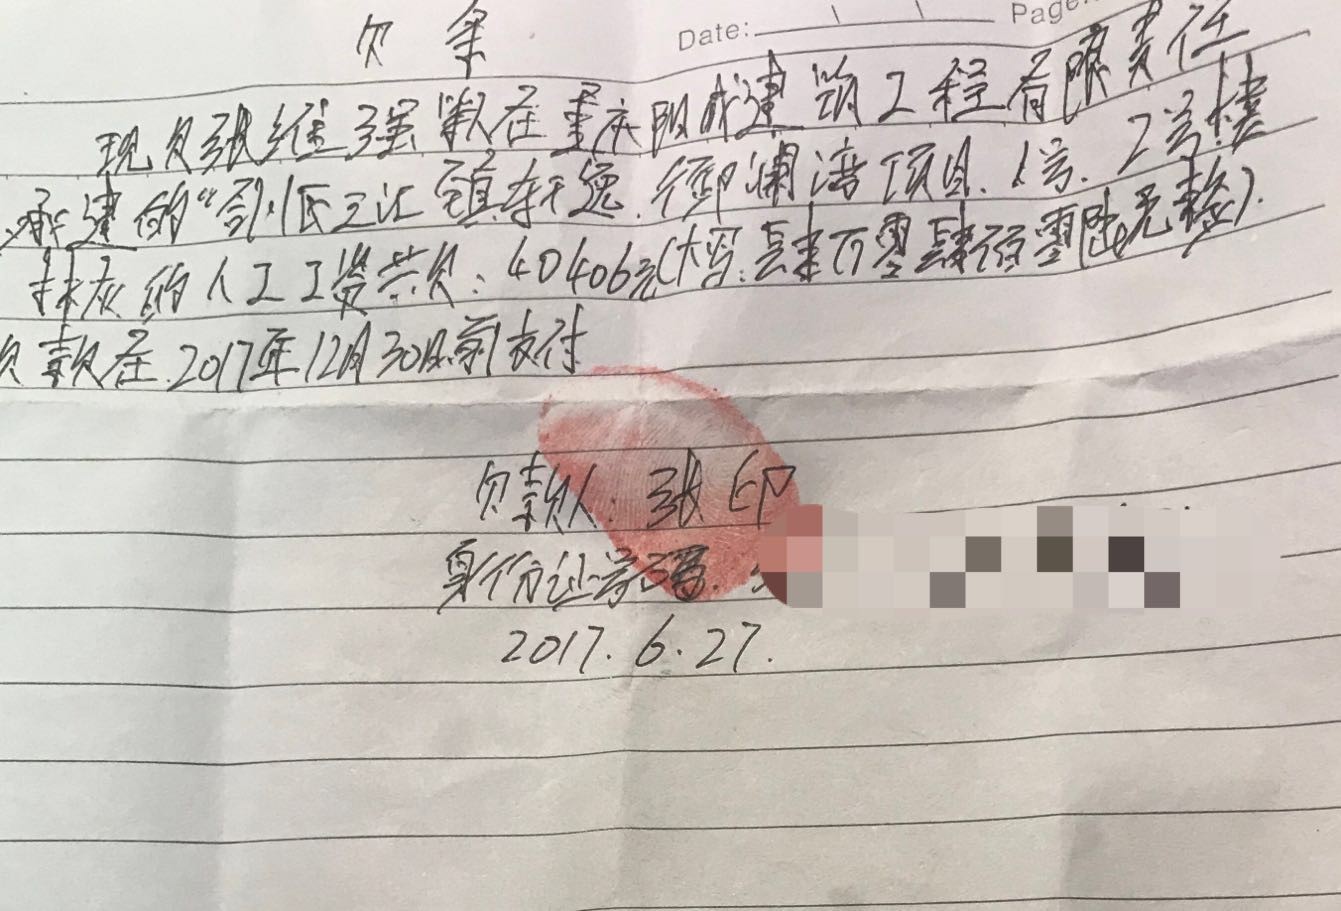 欠条
Date: Page:
现欠张维强班在重庆阳成建筑工程有限责任
承建的“ 镇东 逸.御澜湾项目.1号.2号楼
抹灰的人工工资共欠:40406元(大写:肆万零肆佰零陆元整).
欠款在2017年12月30日前支付
欠款人:张印
身份证号码:
2017.6.27.